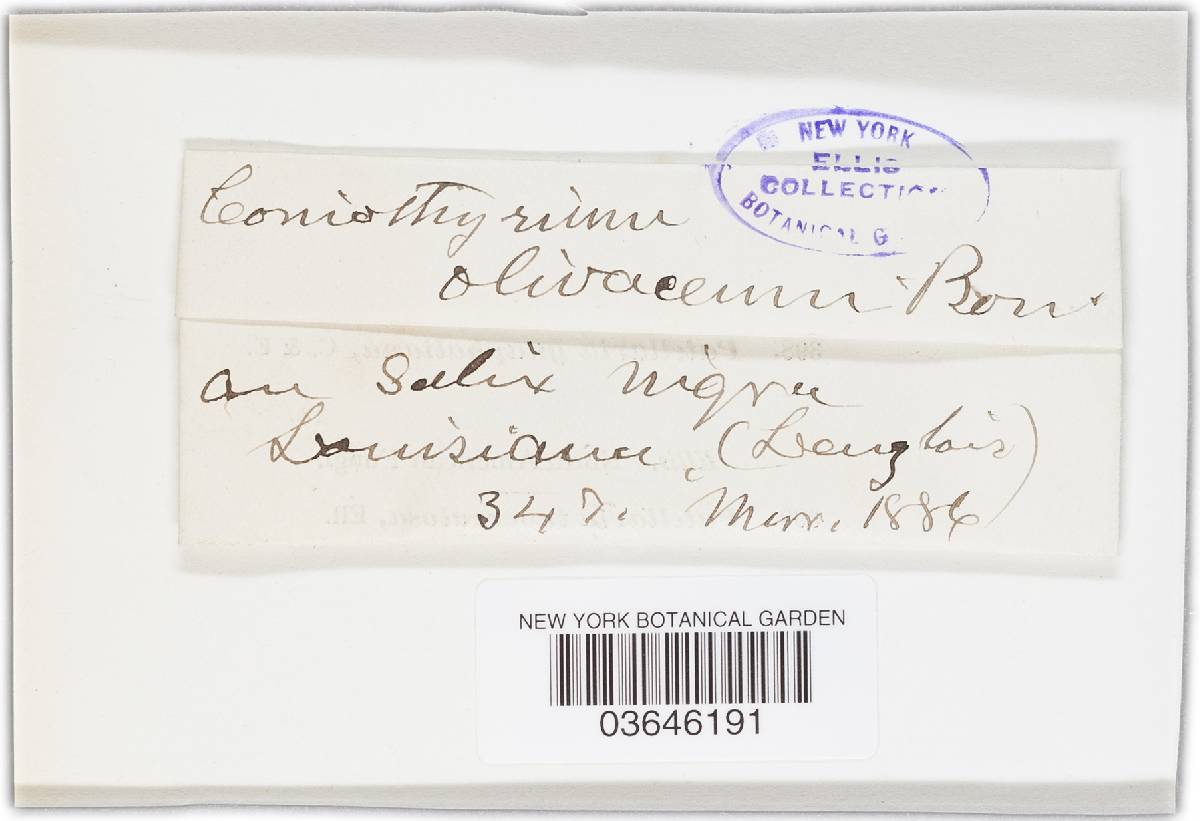 NEW YORK
ELLIS
COLLECTION
BOTANICAL G
Coniothyrium
olivaceum Bon.
on Salix nigra
Louisiana, (Langlois)
347. Mar. 1886
NEW YORK BOTANICAL GARDEN
03646191